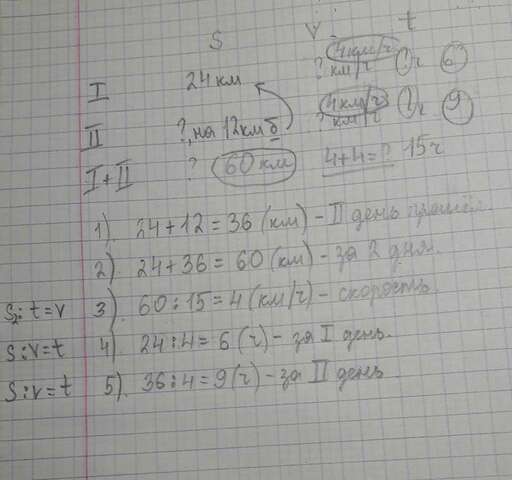 S V t
I 24 км ? 4км/ч км/ч ? ч 6
II ?, на 12км б ? 4км/ч км/ч ? ч 9
I+II ? 60 км 4+4=? 15ч
1). 24+12=36 (км) - II день прошёл.
2). 24+36=60 (км) - за 2 дня.
S:t=v 3). 60:15=4 (км/ч) - скорость.
S:v=t 4). 24:4=6 (ч) - за I день.
S:v=t 5). 36:4=9 (ч) - за II день